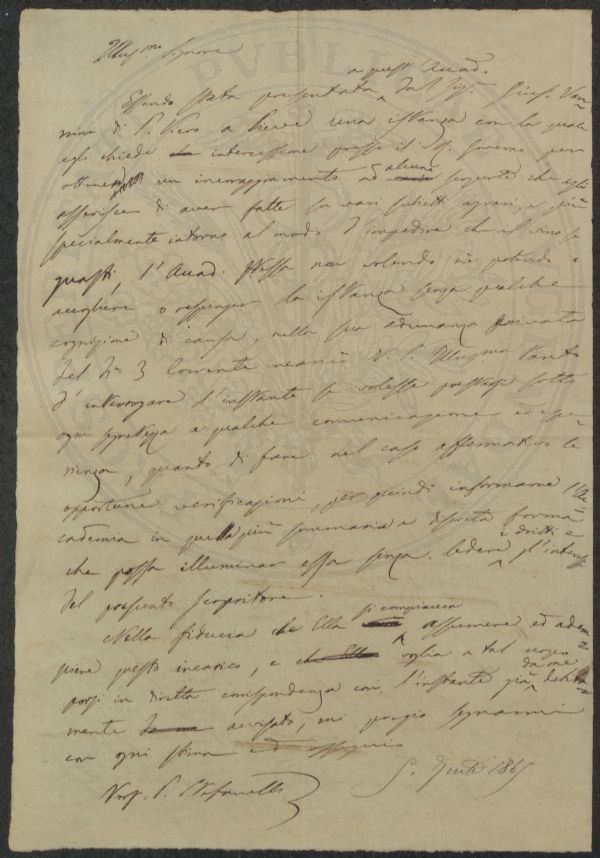 PVBLI
Illus.mo Signore
a quest'Acad.
Essendo stata presentata dal Sig. Gius. Van=
nini di S. Piero a Sieve una istanza con la quale
egli chiede intercessione presso il R. Governo per
ottenere un incoraggiamento ad alcune scoperte che egli
asserisce di aver fatte su vari subietti agrari, e più
specialmente intorno al modo d'impedire che il vino si
guasti, l'Acad. stessa non volendo nè potendo
accogliere o respinger la istanza senza qualche
cognizione di causa, nella sua adunanza privata
del dì 3 corrente incaricò V. S. Illus.ma tanto
d'interrogare l'instante se volesse prestarsi sotto
ogni segretezza a qualche comunicazione ed espe=
rienza, quanto di fare nel caso affermativo le
opportune verificazioni, per quindi informarne l'Ac=
cademia in quella più sommaria e discreta forma
che possa illuminar essa senza ledere i dritti e gl'interessi
del presunto scopritore.
Nella fiducia che Ella si compiaccia assumere ed adem=
piere questo incarico, e voglia a tal uopo
porsi in diretta corrispondenza con l'instante già da me debita=
mente avvisato, mi pregio segnarmi
con ogni stima ed ossequio
Prof. P. Stefanelli
1865